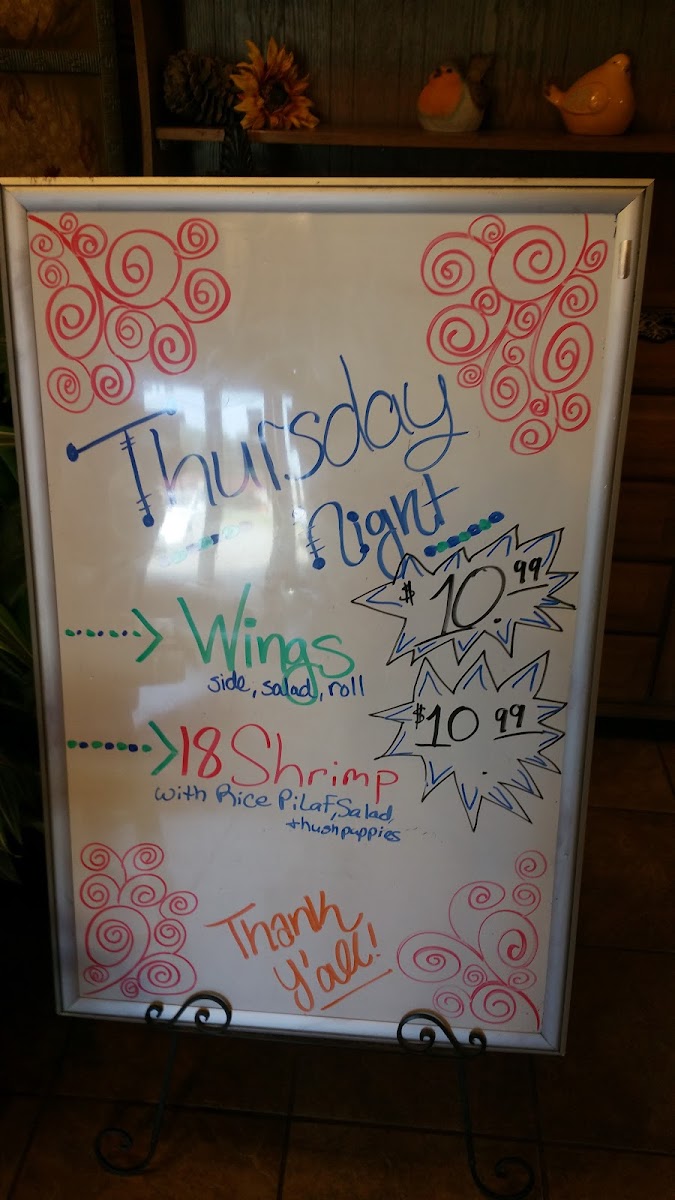 Thursday
Night
Wings $10.99
side, salad, roll
18 Shrimp $10.99
with Rice Pilaf, Salad,
+ hushpuppies
Thank
Y'all!